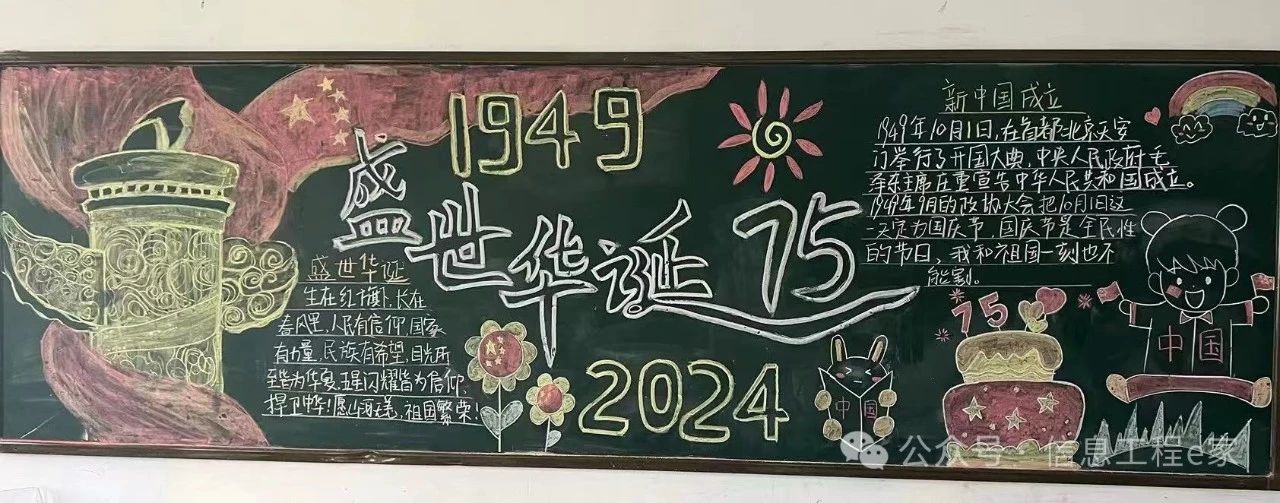 1949
盛世华诞 75
2024
盛世华诞
生在红旗下,长在
春风里,人民有信仰,国家
有力量,民族有希望,目光所
至皆为华夏,五星闪耀皆为信仰,
捍卫中华!愿山河无恙,祖国繁荣!
新中国成立
1949年10月1日,在首都北京天安
门举行了开国大典,中央人民政府毛
泽东主席庄重宣告中华人民共和国成立。
1949年9月的政协大会把10月1日这
一天定为国庆节,国庆节是全民性
的节日,我和祖国一刻也不
能割。
75
中国
中国
公众号·信息工程e家